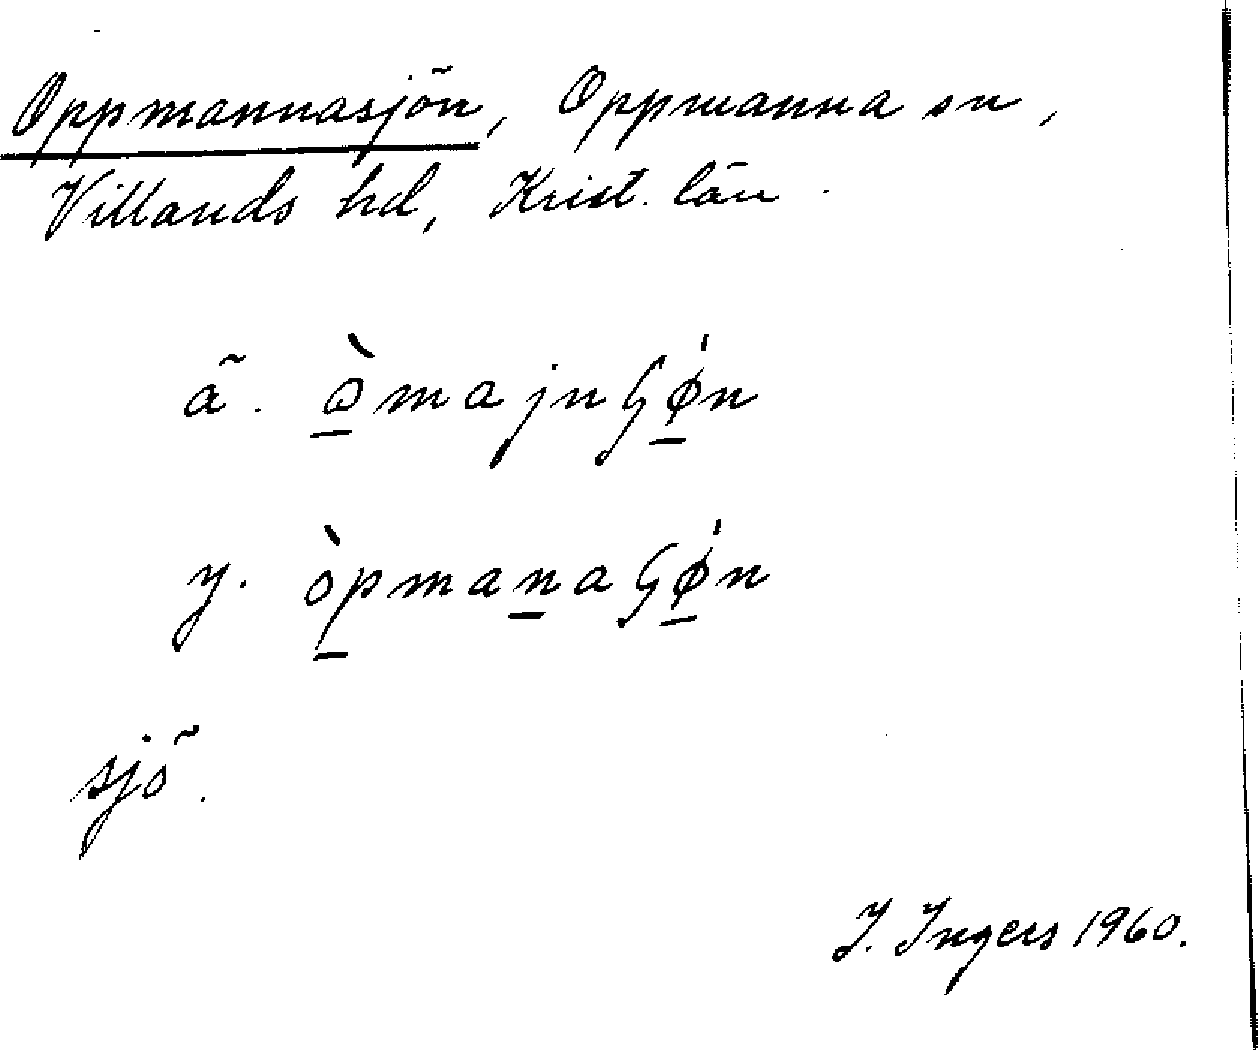 Oppmannasjön, Oppmanna sn,
Villands hd, Krist. län.
ä. ɔ̲̀majnʕǿ̲n
y. òp̲man̲aʕǿ̲n
sjö.
I. Ingers 1960.